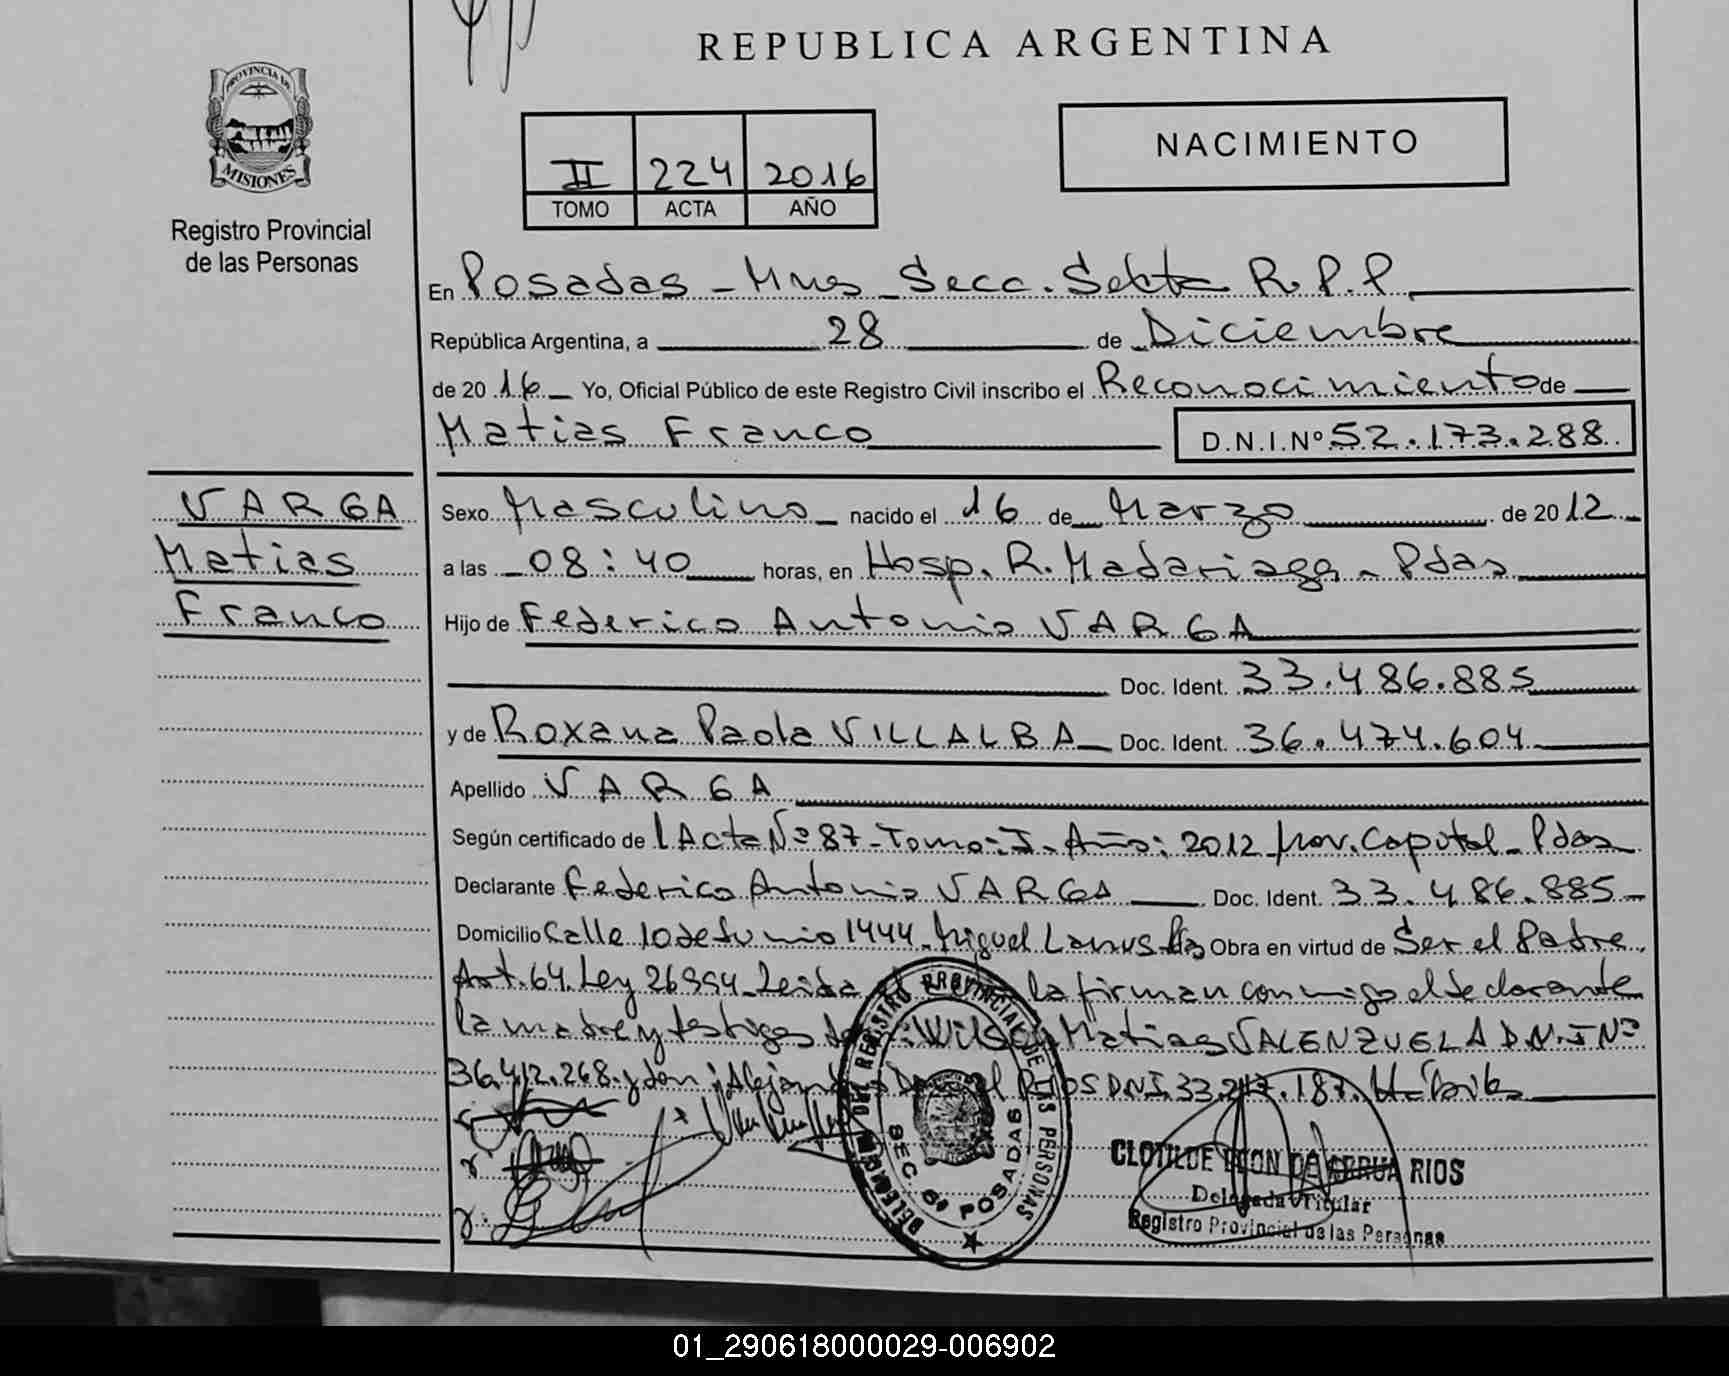 REPUBLICA ARGENTINA
PROVINCIA DE
MISIONES
Registro Provincial
de las Personas
II 224 2016
TOMO ACTA AÑO
NACIMIENTO
En Posadas - Mnes - Secc. Sexta R.P.P.
República Argentina, a 28 de Diciembre
de 2016 Yo, Oficial Público de este Registro Civil inscribo el Reconocimiento de
Matias Franco D.N.I.Nº 52.173.288
VARGA
Matias
Franco
Sexo Masculino nacido el 16 de Marzo de 2012
a las 08:40 horas, en Hosp. R. Madariaga - Pdas
Hijo de Federico Antonio VARGA
Doc. Ident. 33.486.885
y de Roxana Paola VILLALBA Doc. Ident. 36.474.604
Apellido VARGA
Según certificado de l Acta Nº 87 - Tomo: I - Año: 2012 Prov. Capital - Pdas
Declarante Federico Antonio VARGA Doc. Ident. 33.486.885
Domicilio Calle 10 de Junio 1444 - Miguel Lanus Pdas Obra en virtud de Ser el Padre
Art. 64. Ley 26994 - Leida el la firman conmigo el declarante
la madre y testigos Matias VALENZUELA D.N.I Nº
36.412.268 y don RIOS DNI. 33.217.187.
DEL REGISTRO PROVINCIAL DE LAS PERSONAS
SEC. 6ª POSADAS
CLOTILDE LEON DE ARRUA RIOS
Delegada Titular
Registro Provincial de las Personas
01_290618000029-006902